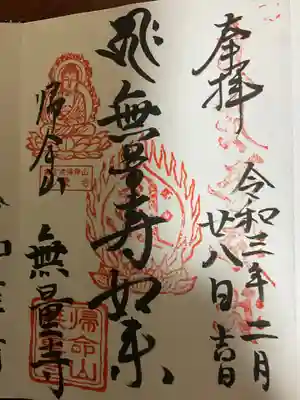 奉拝
令和三年二月
廿八日吉日
無量寿如来
帰命山
無量寺
帰命山